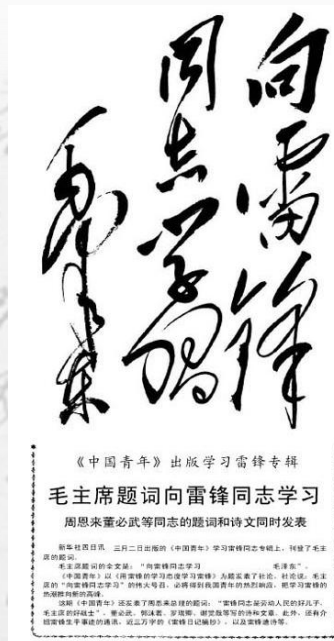 向雷锋
同志学习
毛泽东
《中国青年》出版学习雷锋专辑
毛主席题词向雷锋同志学习
周恩来董必武等同志的题词和诗文同时发表
新华社四日讯 三月二日出版的《中国青年》学习雷锋同志专辑上，刊登了毛主
席的题词。
毛主席题词的全文是：“向雷锋同志学习 毛泽东”。
《中国青年》以《用雷锋的学习态度学习雷锋》为题发表了社论。社论说，毛主
席的“向雷锋同志学习”的伟大号召，必将得到我国青年的热烈响应，把学习雷锋的
热潮推向新的高峰。
这期《中国青年》还发表了周恩来总理的题词：“雷锋同志是劳动人民的好儿子，
毛主席的好战士”，董必武、郭沫若、罗瑞卿、谢觉哉等写的诗和文章。此外，还有介
绍雷锋生平事迹的通讯，近三万字的《雷锋日记摘抄》，以及雷锋遗诗等。